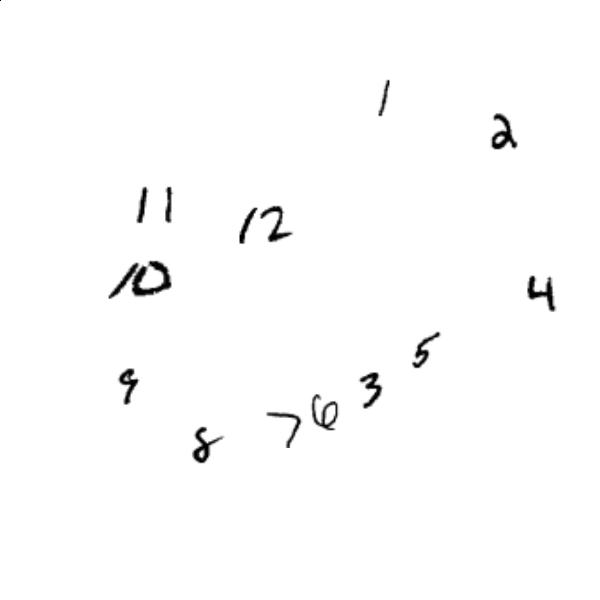 1
2
11 12
10
4
5
9
3
6
7
8